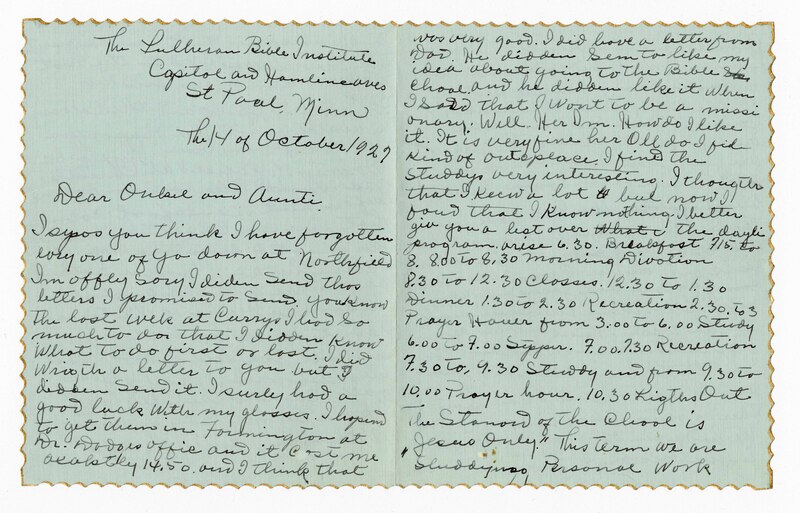 The Lutheran Bible Institute
Capitol and Hamline aves
St Poal, Minn
The 14 of October 1927
Dear Onkel and Aunti.
I sypos you think I have forgotten
evry one of yo down at Northfield
Im offly Sory I diden Send thos
letters I promised to Send. you know
the last wek at Currys I had So
much to do that I didden Know
What to do first or last. I did
Writh a letter to you but I
didden Send it. I surley had a
good luck With my glosses. I hapend
to get them in Formington at
Dr. Dodges offic and it cost me
14.50. and I think that
was very good. I did have a letter from
Dad. He didden Sem to like my
idea about going to the Bible
chool and he didden like it When
I Sad that I Wont to be a missi
onary. Will. Her I'm. How do I like
it. It is very fine her Oll do I fil
Kind of out place. I find the
Studdys very interesting. I thougth
that I Keew a lot but now I
foud that I Know nothing. I better
giv you a list over What is the dayli
program. arise 6.30. Breakfost 7.15. to
8. 8.00 to 8.30 Morning Divotion
8.30 to 12.30 Closses. 12.30 to 1.30
Dinner 1.30 to 2.30 Recreation 2.30. to 3
Prayer Houer from 3.00 to 6.00 Study
6.00 to 7.00 Sypper. 7.00.7.30 Recreation
7.30 to. 9.30 Studdy and from 9.30 to
10.00 Prayer hour. 10.30 Ligths Out
The Stanord of the Chool is
"Jesus Only." This term we are
Studdying Personal Work